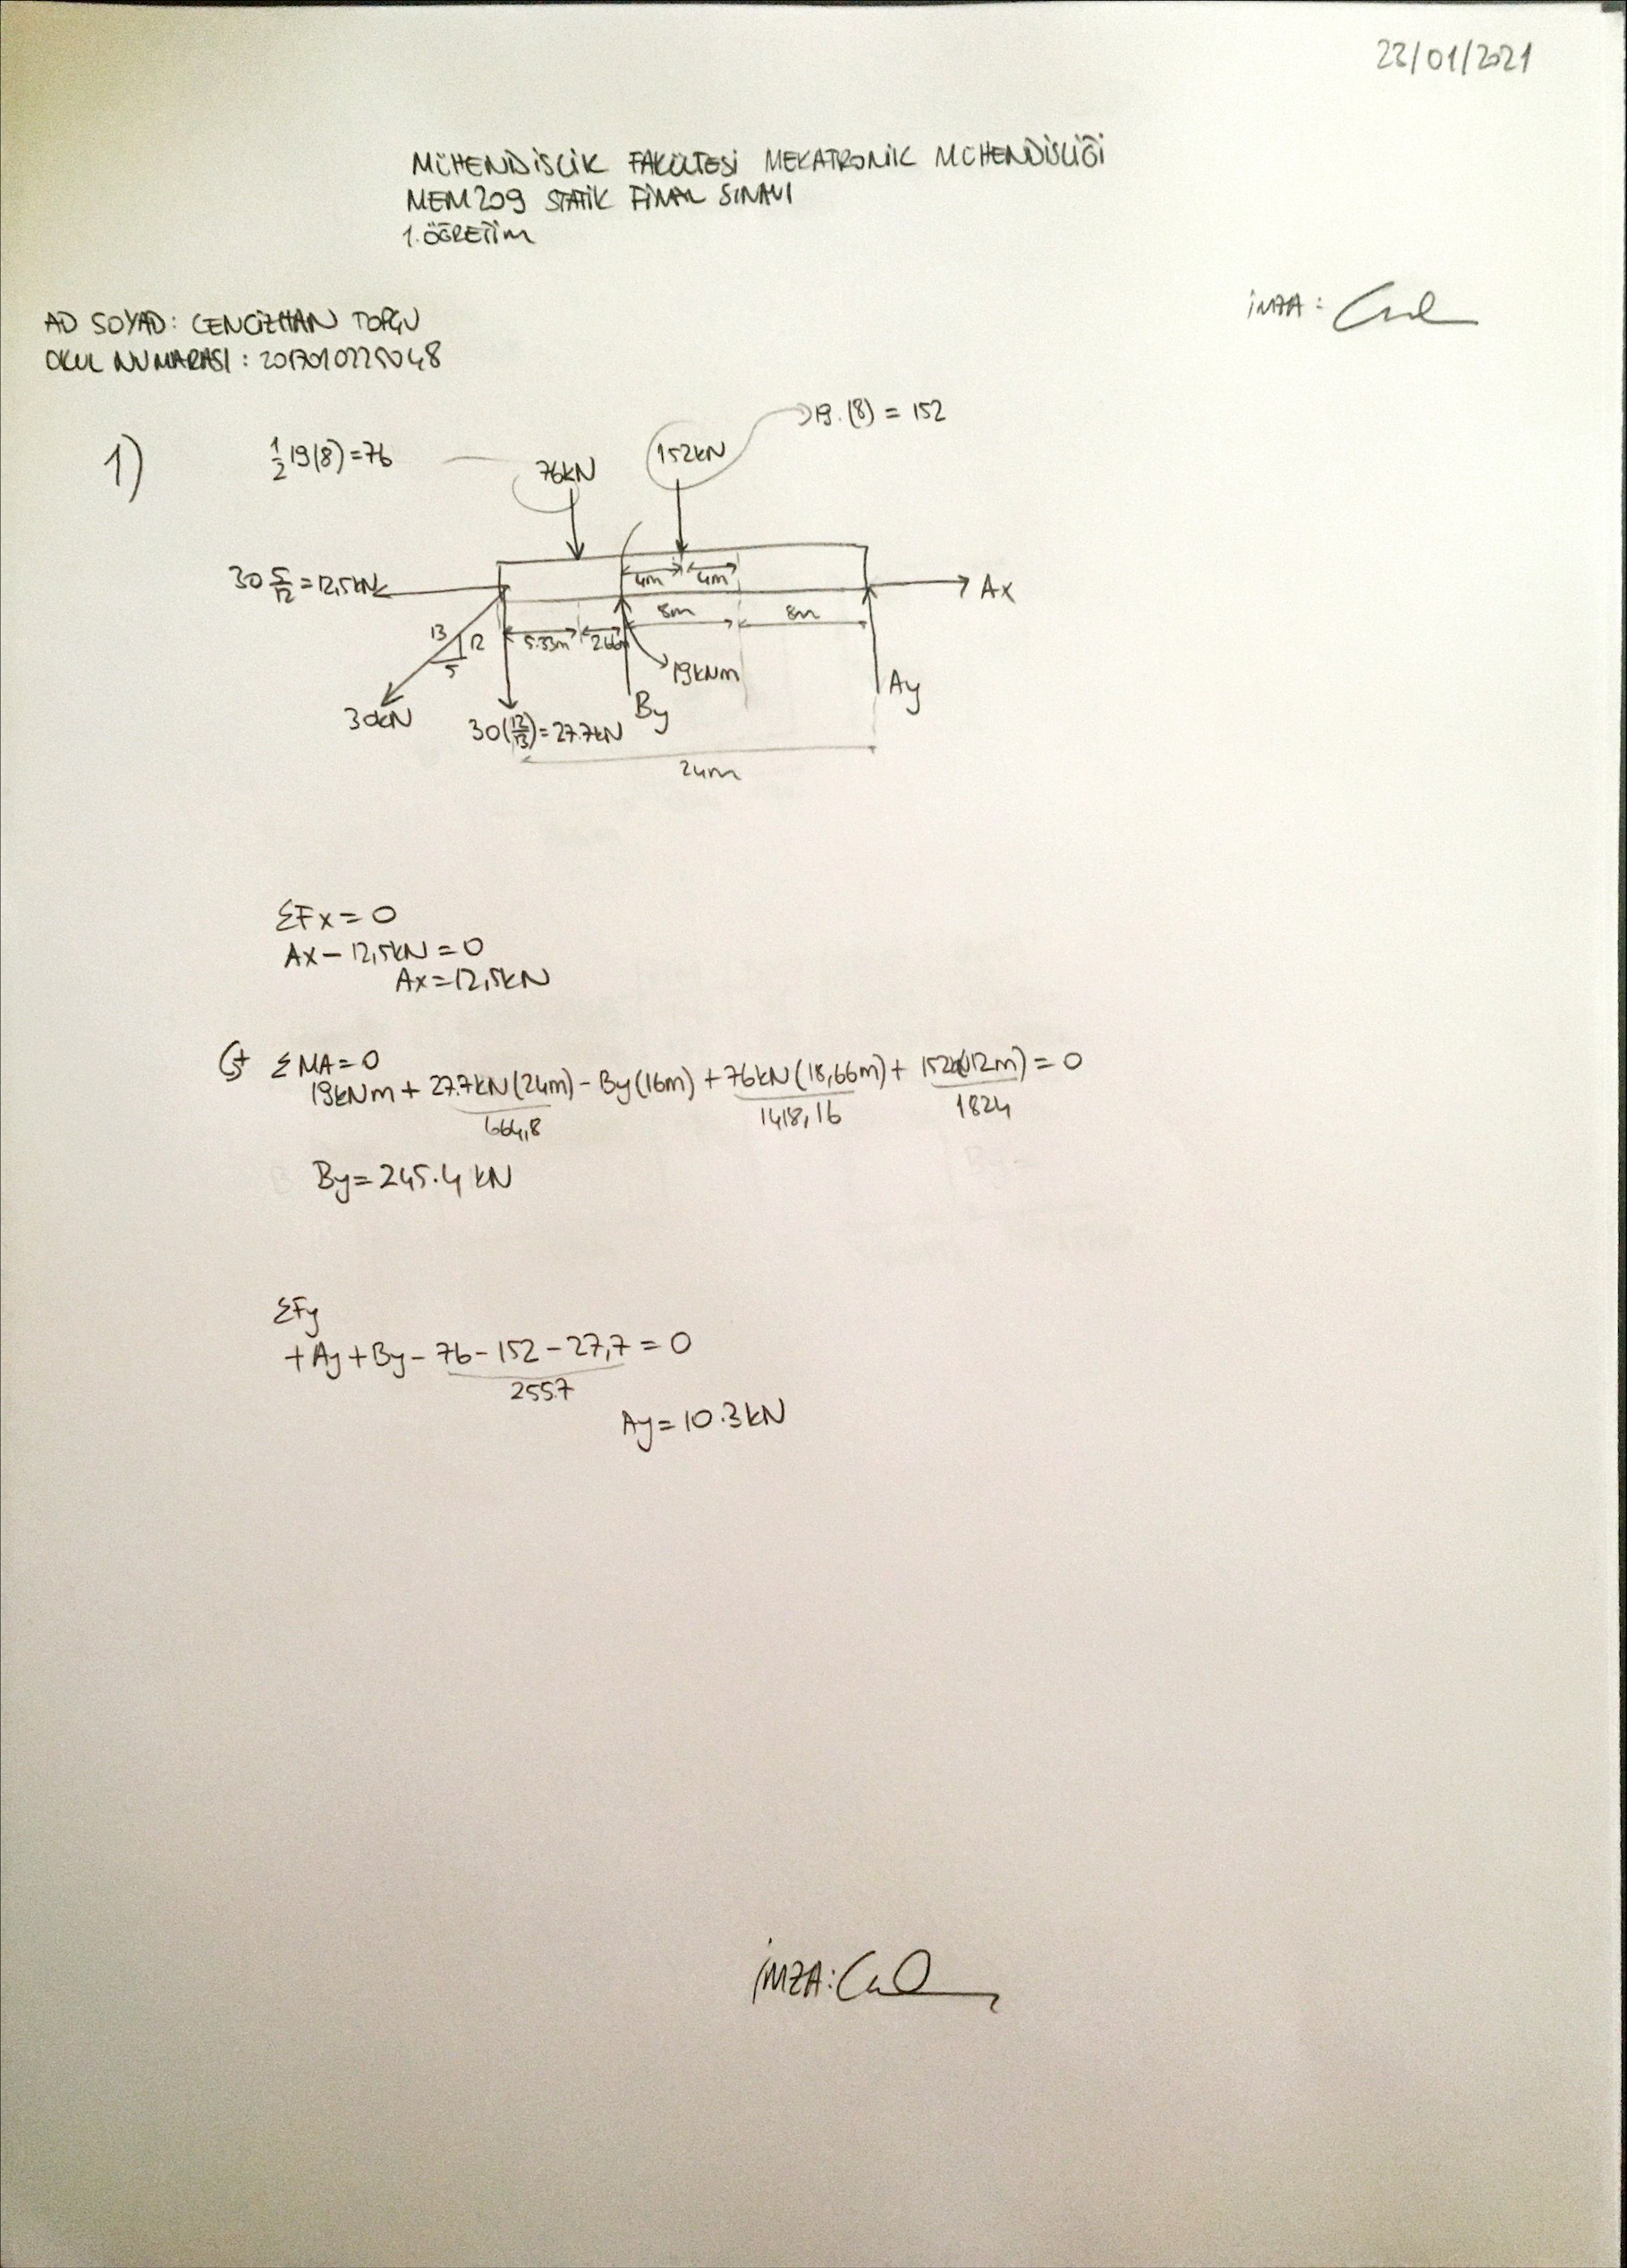 23/01/2021
MÜHENDİSLİK FAKÜLTESİ MEKATRONİK MÜHENDİSLİĞİ
MEM209 STATİK FİNAL SINAVI
1.ÖĞRETİM
İMZA:
AD SOYAD: CENGİZHAN TOPÇU
OKUL NUMARASI:
1)
1/2 19(8)=76
76kN
152kN
19.(8) = 152
30 5/12 = 12,5kN
4m
4m
Ax
8m
8m
13
12
5
5.33m
2.66m
19kNm
By
Ay
30kN
30(12/13)=27.7kN
24m
ΣFx = 0
Ax - 12,5kN = 0
Ax=12,5kN
+ ΣMA=0
19kNm + 27.7kN(24m) - By(16m) + 76kN(18,66m) + 152kN(12m) = 0
664,8
1418,16
1824
By= 245.4 kN
ΣFy
+Ay+By- 76-152-27,7=0
255.7
Ay=10.3kN
İMZA: